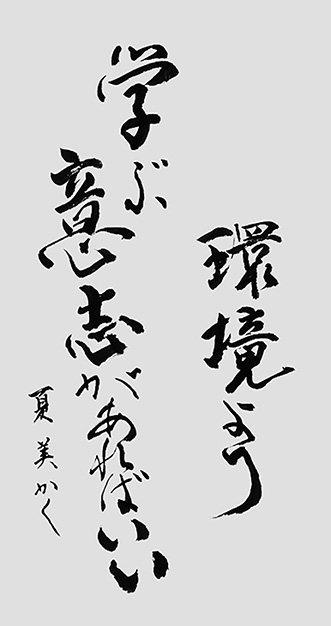 環境より
学ぶ意志があればいい
夏美かく